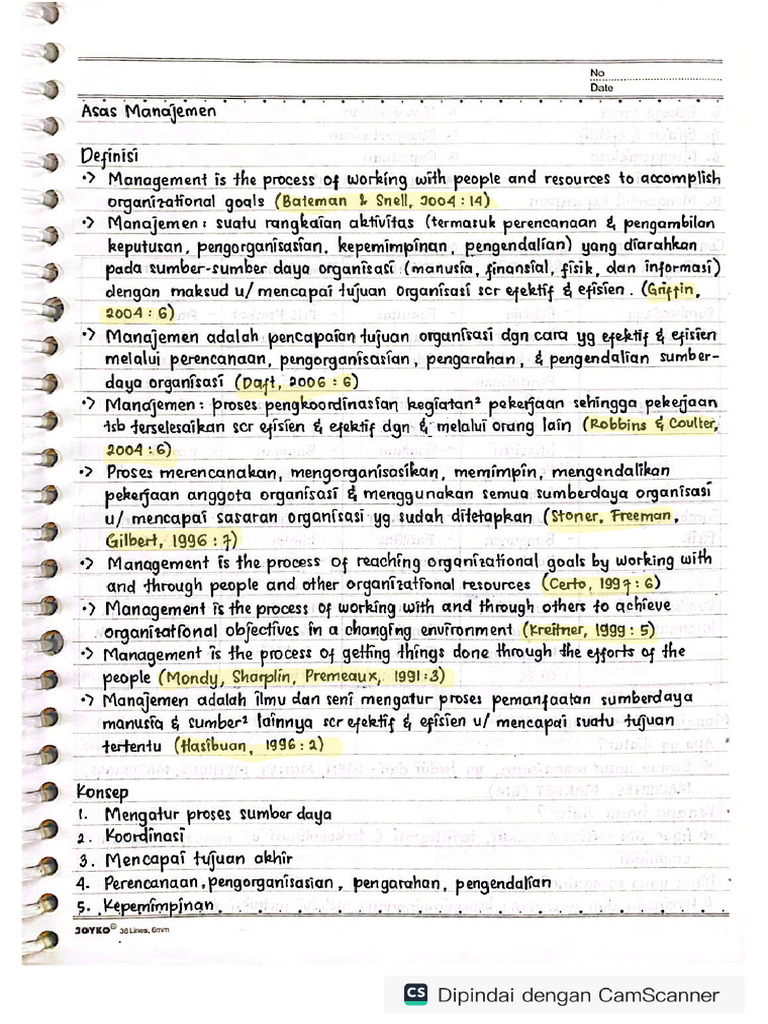 No
Date
Asas Manajemen
Definisi
•> Management is the process of working with people and resources to accomplish
organizational goals (Bateman & Snell, 2004:14)
•> Manajemen: suatu rangkaian aktivitas (termasuk perencanaan & pengambilan
keputusan, pengorganisasian, kepemimpinan, pengendalian) yang diarahkan
pada sumber-sumber daya organisasi (manusia, finansial, fisik, dan informasi)
dengan maksud u/ mencapai tujuan organisasi scr efektif & efisien. (Griffin,
2004:6)
•> Manajemen adalah pencapaian tujuan organisasi dgn cara yg efektif & efisien
melalui perencanaan, pengorganisasian, pengarahan, & pengendalian sumber-
daya organisasi (Daft, 2006:6)
•> Manajemen: proses pengkoordinasian kegiatan² pekerjaan sehingga pekerjaan
tsb terselesaikan scr efisien & efektif dgn & melalui orang lain (Robbins & Coulter,
2004:6)
•> Proses merencanakan, mengorganisasikan, memimpin, mengendalikan
pekerjaan anggota organisasi & menggunakan semua sumberdaya organisasi
u/ mencapai sasaran organisasi yg sudah ditetapkan (Stoner, Freeman,
Gilbert, 1996:7)
•> Management is the process of reaching organizational goals by working with
and through people and other organizational resources (Certo, 1997:6)
•> Management is the process of working with and through others to achieve
organizational objectives in a changing environment (Kreitner, 1999:5)
•> Management is the process of getting things done through the efforts of the
people (Mondy, Sharplin, Premeaux, 1991:3)
•> Manajemen adalah ilmu dan seni mengatur proses pemanfaatan sumberdaya
manusia & sumber² lainnya scr efektif & efisien u/ mencapai suatu tujuan
tertentu (Hasibuan, 1996:2)
Konsep
1. Mengatur proses sumber daya
2. Koordinasi
3. Mencapai tujuan akhir
4. Perencanaan, pengorganisasian, pengarahan, pengendalian
5. Kepemimpinan
JOYKO® 36 Lines, 6mm
CS Dipindai dengan CamScanner